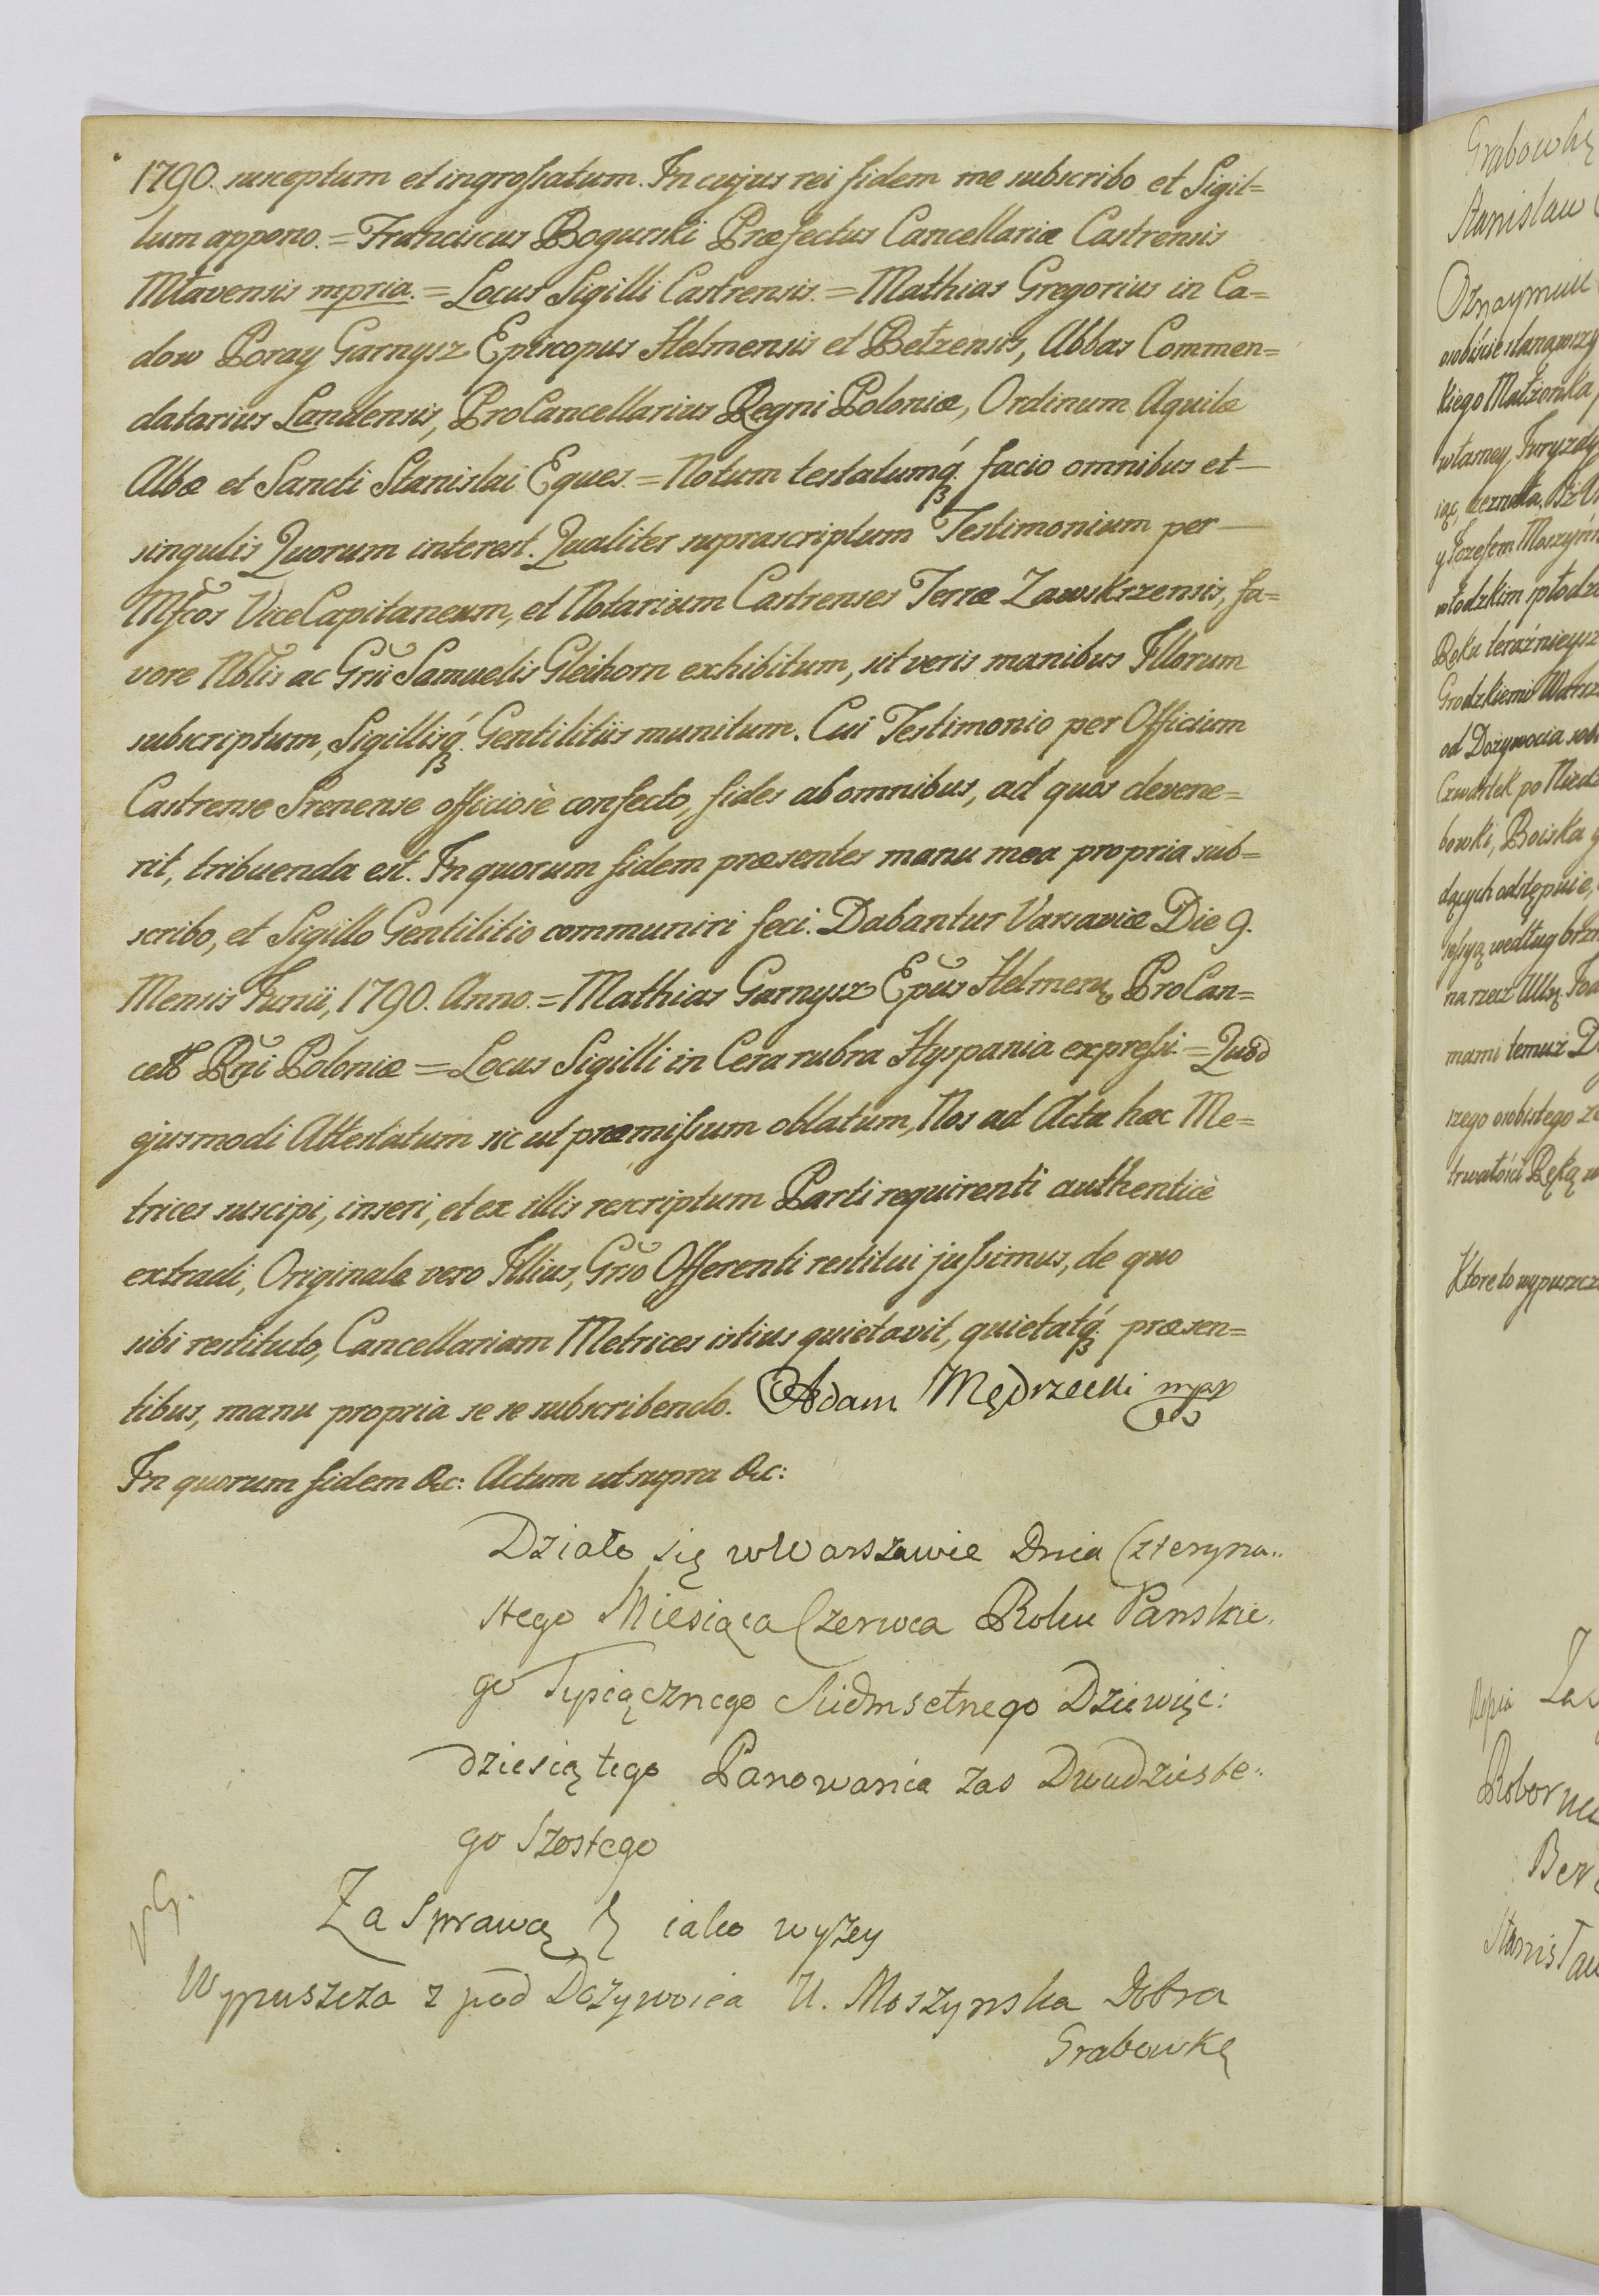 1790. susceptum et ingrossatum. In cujus rei fidem me subscribo et Sigil=
lum appono. = Franciscus Bogurski Præfectus Cancellariæ Castrensis
Młavensis mpria. = Locus Sigilli Castrensis. = Mathias Gregorius in Ca=
dow Poray Garnysz Episcopus Helmensis et Bełzensis, Abbas Commen=
datarius Landensis, ProCancellarius Regni Poloniæ, Ordinum Aquilæ
Albæ et Sancti Stanislai Eques. = Notum testatumq́ facio omnibus et
singulis Quorum interest. Qualiter suprascriptum Testimonium per
Mfcos ViceCapitaneum, et Notarium Castrenses Terræ Zawskrzensis, fa=
vore Nblis ac Grsi Samuelis Gleihorn exhibitum, sit veris manibus Illorum
subscriptum, Sigillisq́ Gentilitiis munitum. Cui Testimonio per Officium
Castrense Srenense officiosè confecto, fides ab omnibus, ad quos devene=
rit, tribuenda est. In quorum fidem præsentes manu mea propria sub=
scribo, et Sigillo Gentilitio communiri feci. Dabantur Varsaviæ Die 9.
Mensis Junii, 1790. Anno. = Mathias Garnysz Epus Helmens, ProCan=
cell Rni Poloniæ = Locus Sigilli in Cera rubra Hyspania expressi = Quod
ejusmodi Attestatum sic ut præmissum oblatum, Nos ad Acta hæc Me=
trices suscipi, inseri, et ex illis rescriptum Parti requirenti authenticè
extradi, Originale vero Illius, Grso Offerenti restitui jussimus, de quo
sibi restituto, Cancellariam Metrices istius quietavit, quietatq́ præsen=
tibus, manu propria se se subscribendo. Adam Mędrzecki mpp
In quorum fidem &c: Actum ut supra &c:
Działo się w Warszawie Dnia Czteryna..
stego Miesiąca Czerwca Roku Panskie.
go Tysiącznego Siedmsetnego Dziewięć:
dziesiątego Panowania zas Dwudzieste..
go Szostego
Za Sprawą iako wyzey
Wypuszcza z pod Dozywocia U. Moszynska Dobra
Grabowkę
Grabowkę
Stanislaw
Oznaymui
osobiście stanąwszy
kiego Małżonka,
własney Juryzdy
iąc, zeznała, Iż U
y Jozefem Moszyńs
włodzkim płodz
Roku teraźnieysz
Grodzkiemi Warsz
od Dożywocia
Czwartek po Niedz
bowki, Bowska
dących odstępuie,
według brzm
na rzecz
mami temuż D
szego osobistego z
trwałości Ręką
Ktore to wypuszcz
Robor
Ber
Stanisław